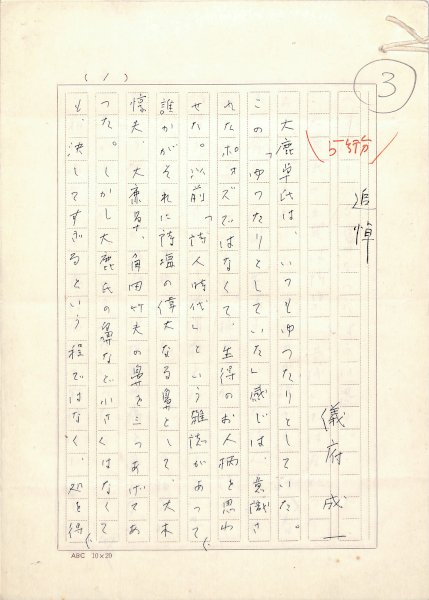 (1)
3
5行分
追悼
儀府成一
大鹿卓氏は、いつもゆつたりとしていた。
この「ゆつたりとしていた」感じは、意識さ
れたポオズではなくて、生得のお人柄を思わ
せた。以前「詩人時代」という雑誌があつて、
誰かがそれに詩壇の偉大なる鼻として、大木
惇夫、大鹿卓、角田竹夫の鼻を三つあげてあ
つた。しかし大鹿氏の鼻など小さくはなくて
も、決してすぎるという程ではなく、処を得
ABC 10×20